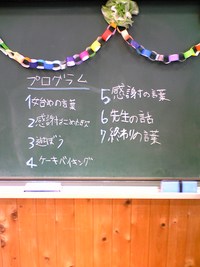 プログラム
1 始めの言葉
2 感謝をこめて
3 遊ぼう
4 ケーキバイキング
5 感謝の言葉
6 先生の話
7 終わりの言葉